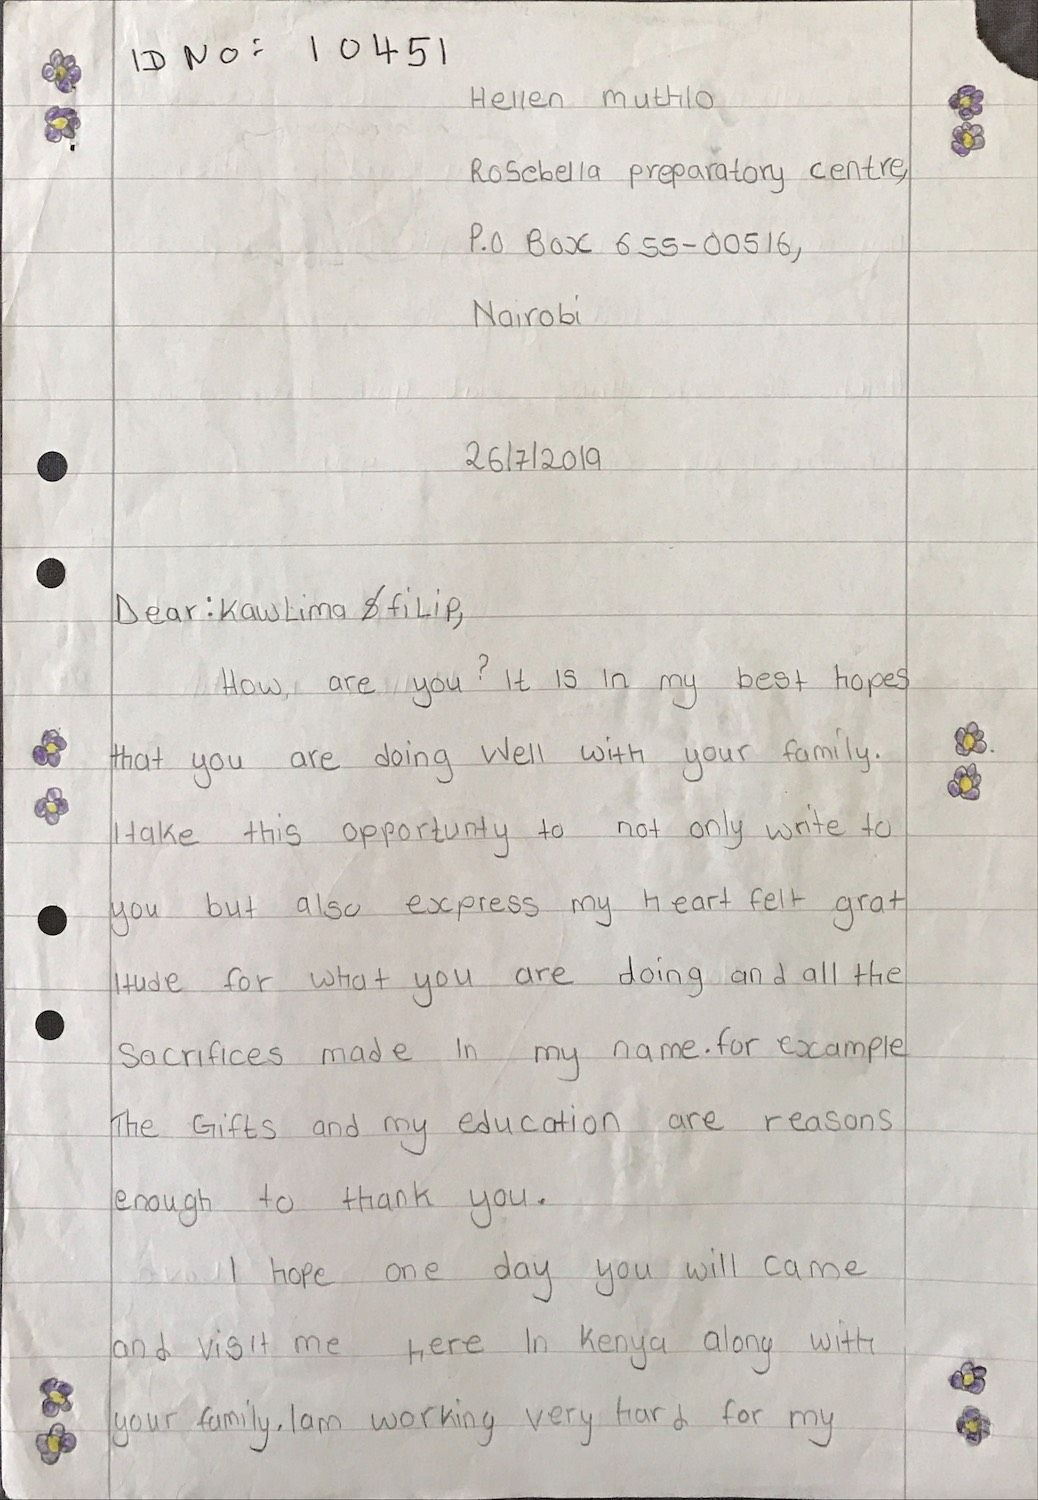 ID NO: 10451
Hellen muthlo
Rosebella preparatory centre,
P.O Box 655-00516,
Nairobi
26/7/2019
Dear: Kawlima & filip,
How, are you? It is in my best hopes
that you are doing well with your family.
I take this opportunty to not only write to
you but also express my heart felt grat
itude for what you are doing and all the
Sacrifices made in my name. for example
The Gifts and my education are reasons
enough to thank you.
I hope one day you will came
and visit me here In Kenya along with
your family. Iam working very hard for my